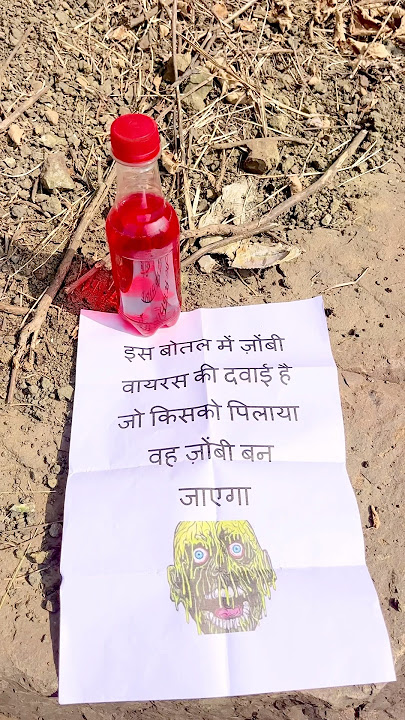 इस बोतल में ज़ोंबी
वायरस की दवाई है
जो किसको पिलाया
वह ज़ोंबी बन
जाएगा